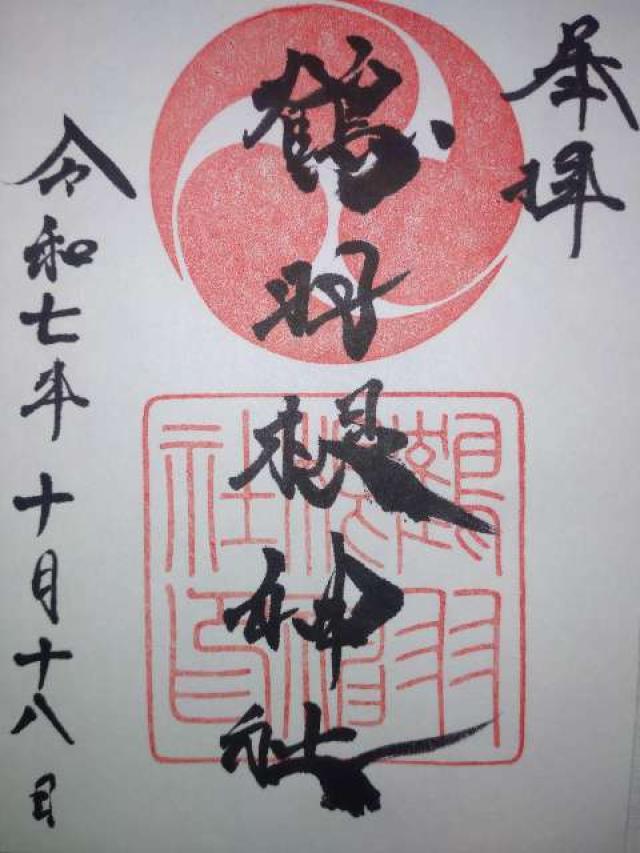 奉拝
鶴羽根神社
鶴羽
根神
社印
令和七年十月十八日